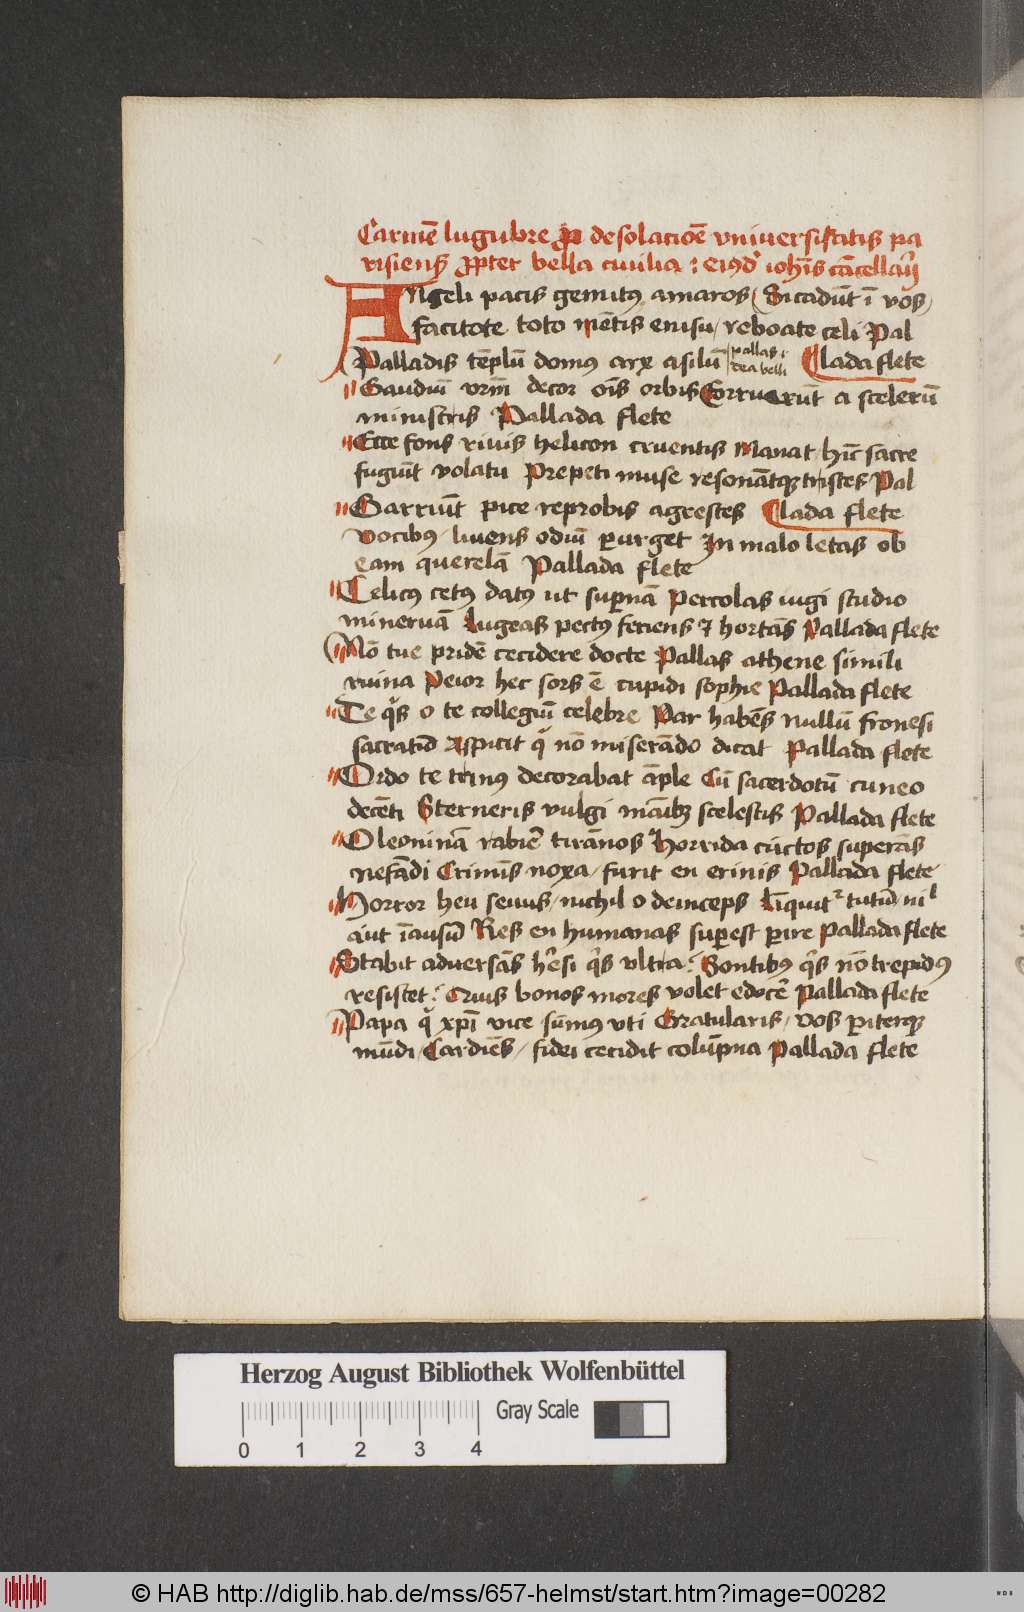 Carmē lugubre desolacioē vniuersitatis pa
risiensꝭ ꝓpter bella ciuilia : eiꝰd iohīs cācellarij
Angeli pacis gemitꝰ amaros dicadūt ī vos
facitote toto mētis enisu / reboate celi Pal
Palladis tēplū domꝰ arx asilū pallas ē dea belli lada flete
Gaudiū vrm̄ decor oīs orbis Corruerūt a scelerū
ministris Pallada flete
Ecce fons riuis helicon cruentis Manat hīc sacre
fugiūt volatu Prepeti muse resonātqꝫ tristes Pal
Garriūt pice reprobis agrestes lada flete
vocibus / liuens odiū ꝑurget In malo letas ob
eam querelā Pallada flete
Celicꝰ cetꝰ datꝰ ut supnā Percolas iugi studio
mineruā Lugeas pectꝰ feriens ⁊ hortās Pallada flete
Nō tue pridē cecidere docte Pallas athene simili
ruina Peior hec sors ē cupidi sophie Pallada flete
Te qͥs o te collegiū celebre Par habēs nullū fronesi
sacratid Aspicit qͥ nō miserādo dicat Pallada flete
Ordo te trinꝰ decorabat āple Cū sacerdotū cuneo
decēti Sterneris vulgi mānibꝫ scelestis Pallada flete
O leoninā rabiē tirānos Horrida cūctos superās
nefādi Crimīs noxa / furit en erinis Pallada flete
Horror heu seuus / nichil o deinceps Līquitʳ tutū / nil
aut īausū Res en humanas supest ꝑire Pallada flete
Stabit aduersās hēsi qͥs vltra : Sontibꝰ qͥs nō trepidꝰ
resistet : Cuius bonos mores volet edocē Pallada flete
Papa qͥ xp̄i vice sūmꝰ vti Gratularis / vos ꝑiterqꝫ
mūdi / Cardīes / fidei cecidit colūpna Pallada flete
Herzog August Bibliothek Wolfenbüttel
Gray Scale
0 1 2 3 4
© HAB http://diglib.hab.de/mss/657-helmst/start.htm?image=00282